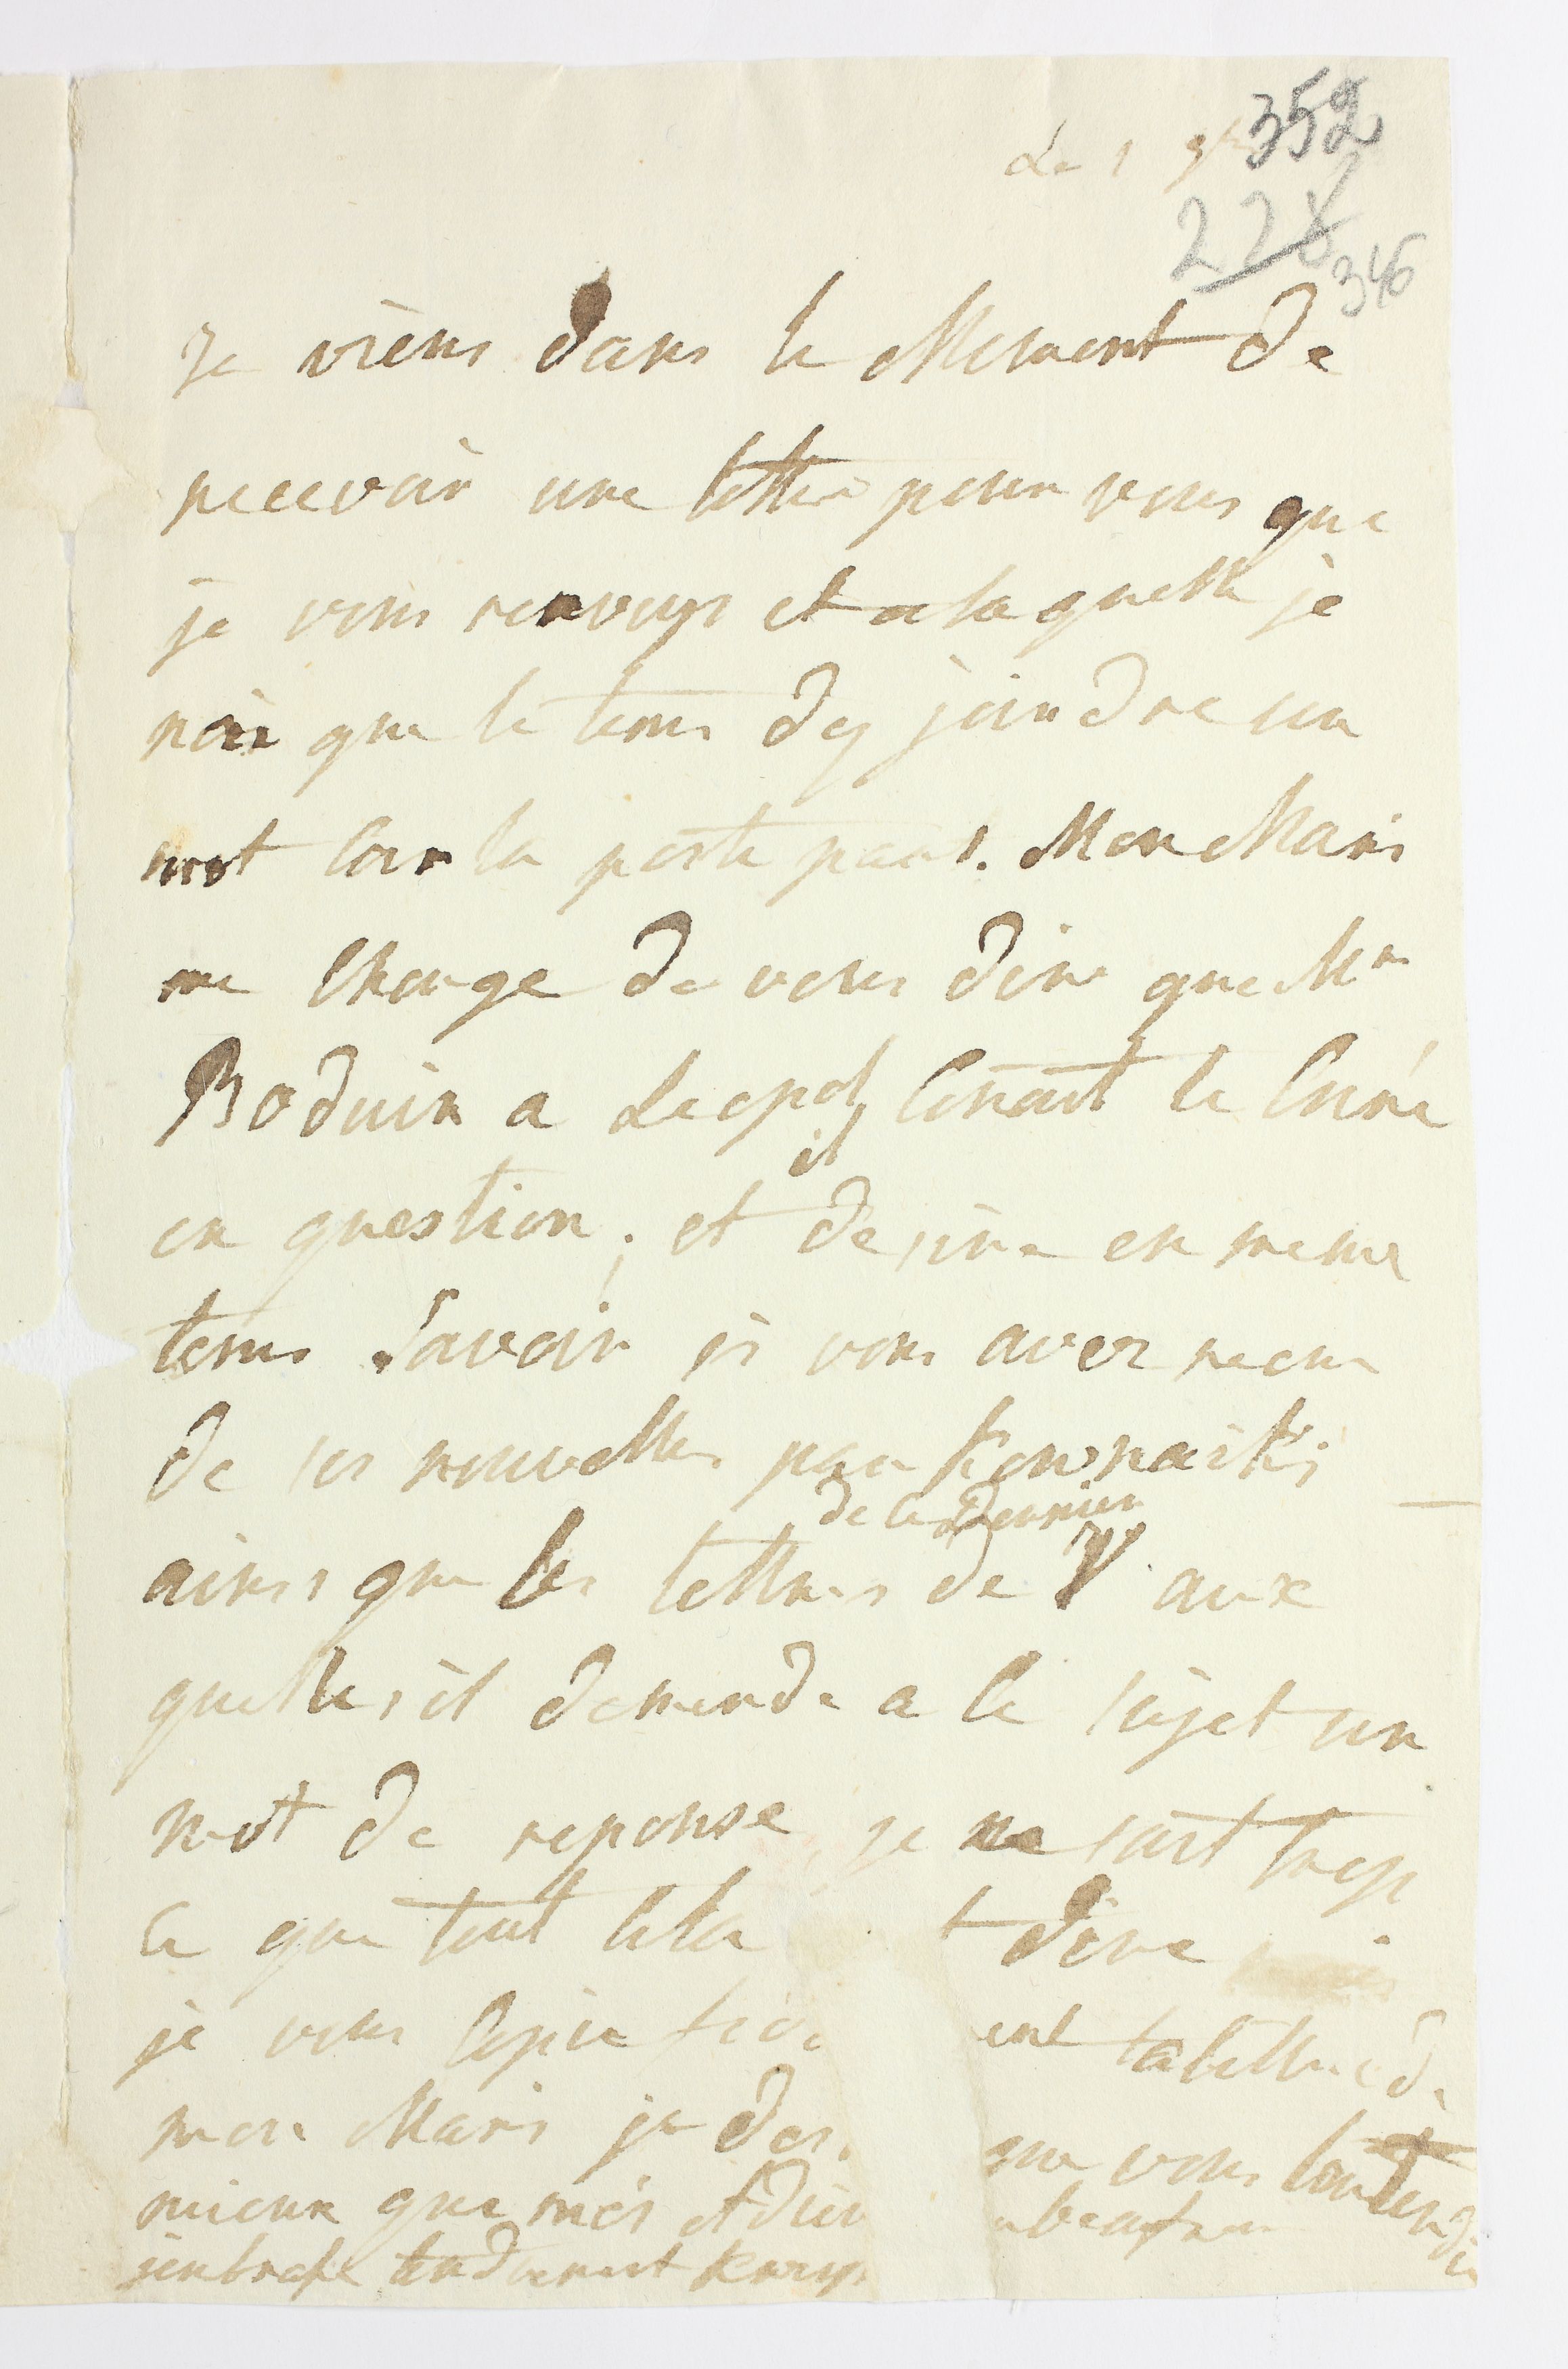 Le 1 9bre 352
228
346
je viens dans le Moment de
recevoir une lettre pour vous que
je vous renvoys et a la quelle je
nai que le tems dy joindre un
mot Car la poste part. Mon Mari
me Charge de vous dire que Mr
Boduin a Leopol Conait le Curé
en question, et il desire en meme
tems Savoir si vous avez recu
de ses nouvelles par
ainsi que les lettres de ce dernier de V aux
quelles il demande a ce sujet un
mot de reponse, je ne sait trop
ce que tout cela t dire
je vous Copie ent la lettre de
mon Mari je que vous
mieux que moi Adieu
jenbrasse tendrement